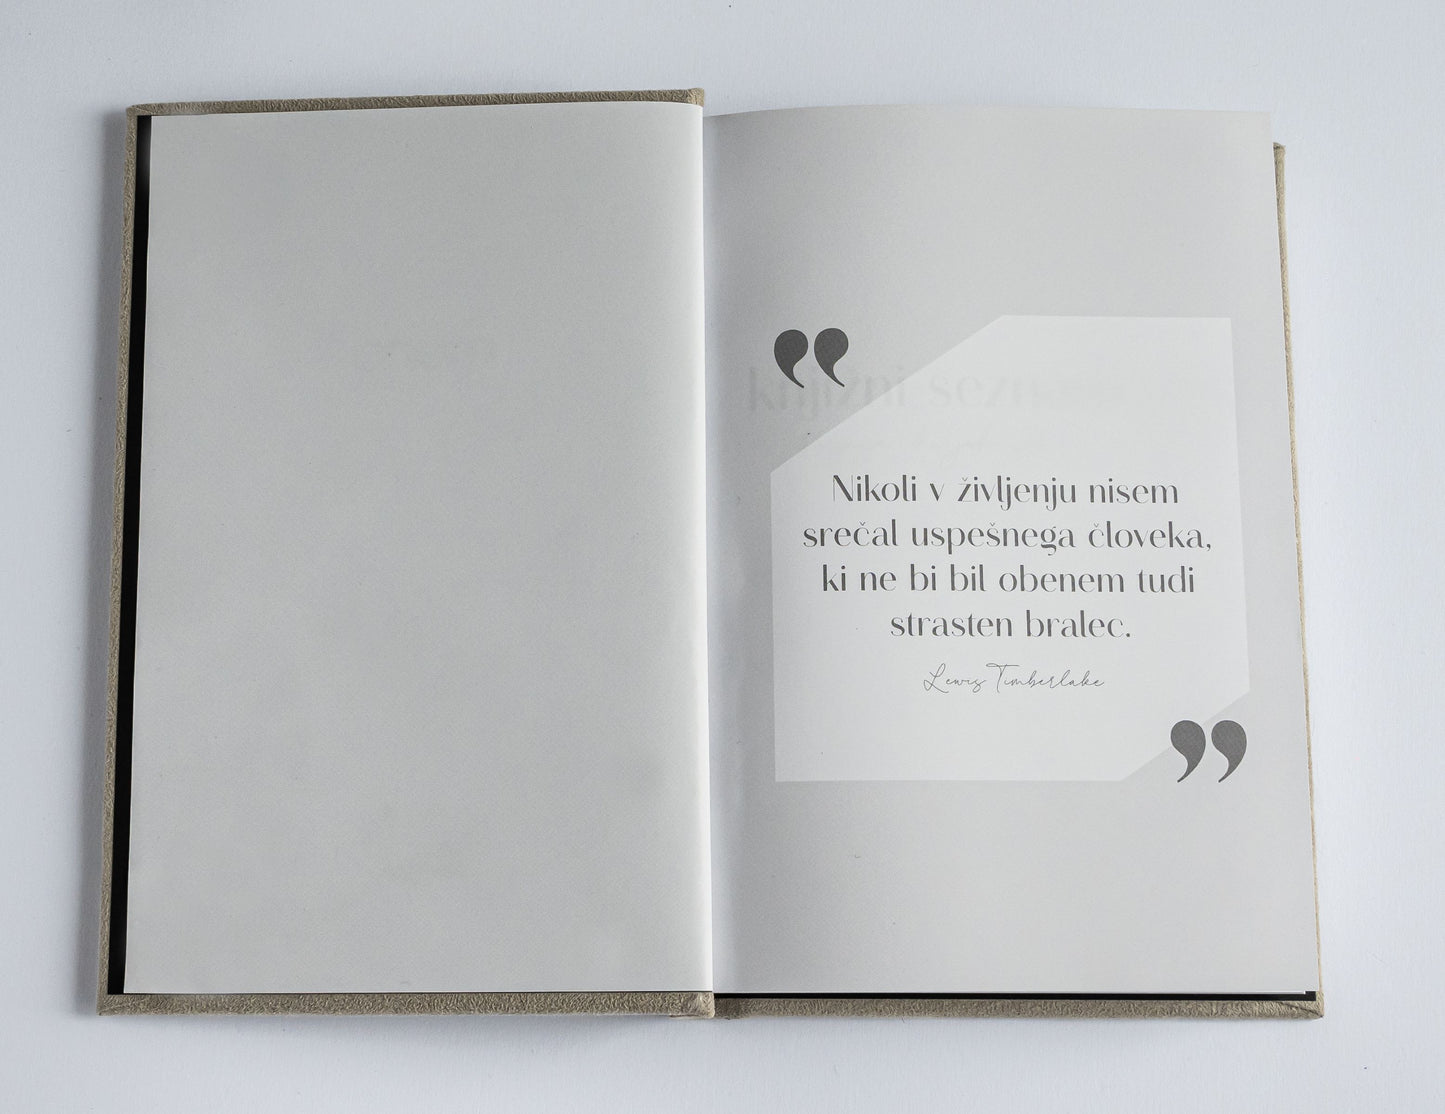 knjižni sezn
Nikoli v življenju nisem
srečal uspešnega človeka,
ki ne bi bil obenem tudi
strasten bralec.
Lewis Timberlake